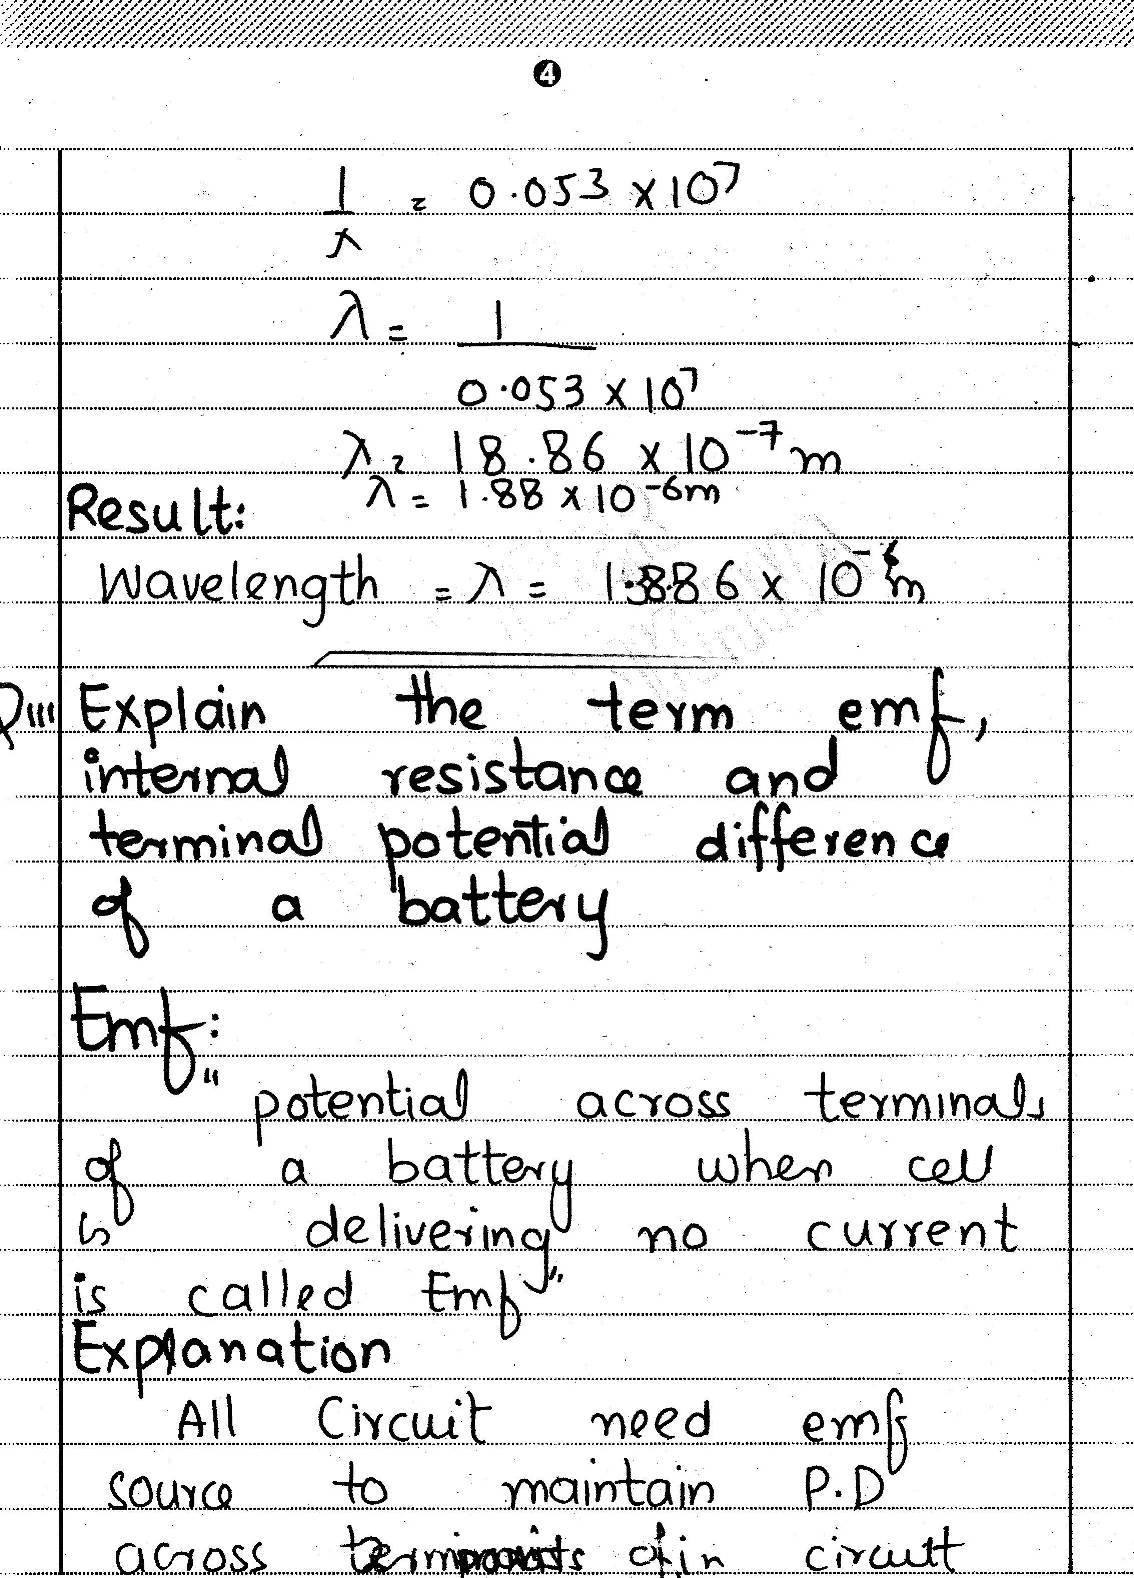 4
1/λ = 0.053 x 10⁷
λ = 1/(0.053 x 10⁷)
λ = 18.86 x 10⁻⁷ m
λ = 1.88 x 10⁻⁶ m
Result:
Wavelength = λ = 1.886 x 10⁻⁶ m
Qiii Explain the term emf,
internal resistance and
terminal potential difference
of a battery
Emf:
"potential across terminals
of a battery when cell
is delivering no current
is called Emf"
Explanation
All Circuit need emf
source to maintain P.D
across in circuit